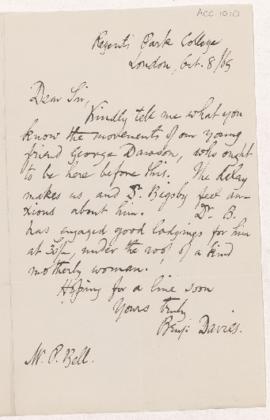 ACC-10:0
Regent's Park College
London, Oct. 8/69
Dear Sir,
Kindly tell me what you
know the movements of our young
friend George Dawson, who ought
to be here before this. The delay
makes us and Dr. Bigsby feel an-
xious about him. Dr. B.
has engaged good lodgings for him
at, under the roof of a kind
motherly woman.
Hoping for a line soon
Yours truly
Benj. Davies.
Mr. R. Bell.